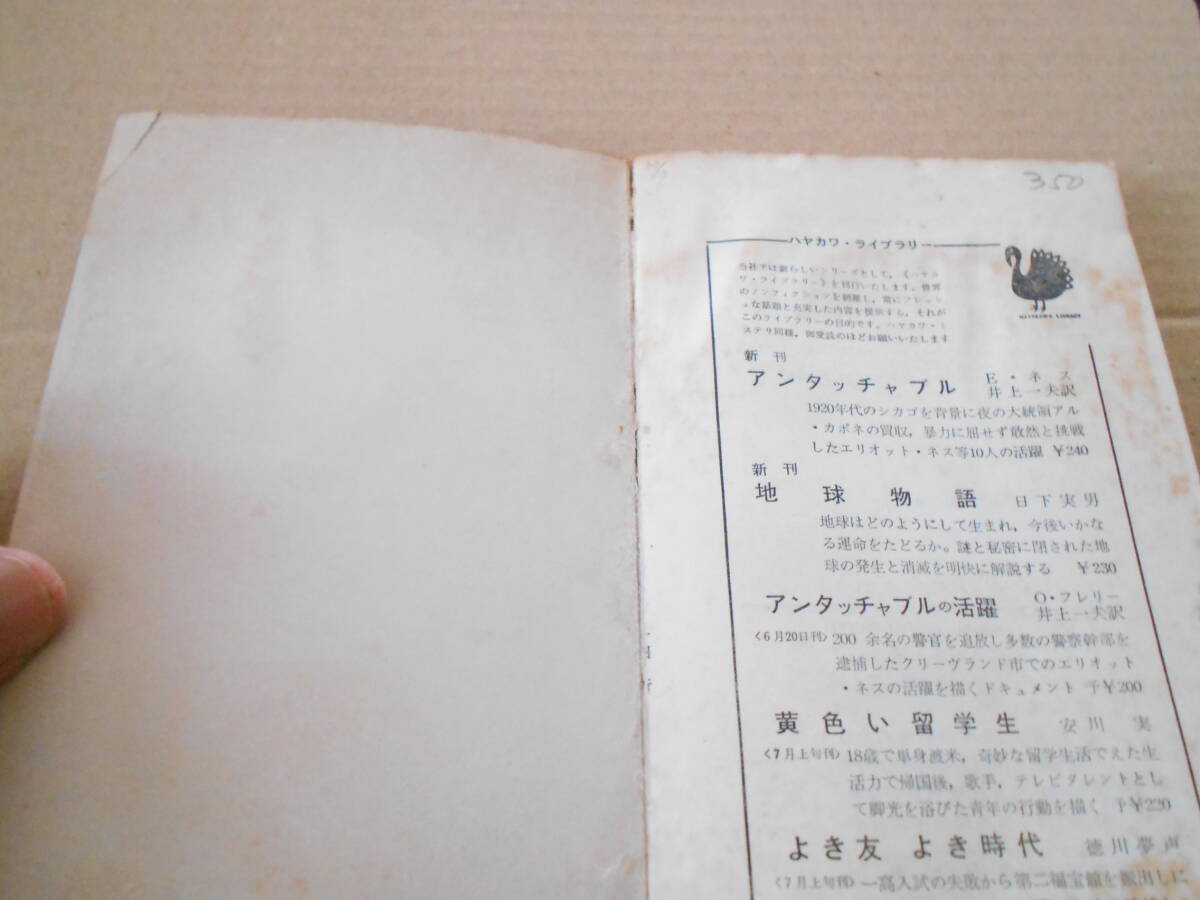 350
ハヤカワ・ライブラリー
HAYAKAWA LIBRARY
当社では新らしいシリーズとして,《ハヤカ
ワ・ライブラリー》を刊行いたします。世界
のノンフィクションを網羅し,常にフレッシ
ュな話題と充実した内容を提供する,それが
このライブラリーの目的です。ハヤカワ・ミ
ステリ同様,御愛読のほどお願いいたします
新刊
アンタッチャブル E・ネス 井上一夫訳
1920年代のシカゴを背景に夜の大統領アル
・カポネの買収,暴力に屈せず敢然と挑戦
したエリオット・ネス等10人の活躍 ¥240
新刊
地球物語 日下実男
地球はどのようにして生まれ,今後いかな
る運命をたどるか。謎と秘密に閉された地
球の発生と消滅を明快に解説する ¥230
アンタッチャブルの活躍 O・フレリー 井上一夫訳
〈6月20日刊〉200余名の警官を追放し多数の警察幹部を
逮捕したクリーヴランド市でのエリオット
・ネスの活躍を描くドキュメント 予¥200
黄色い留学生 安川実
〈7月上旬刊〉18歳で単身渡米,奇妙な留学生活でえた生
活力で帰国後,歌手,テレビタレントとし
て脚光を浴びた青年の行動を描く 予¥220
よき友 よき時代 徳川夢声
〈7月上旬刊〉一高入試の失敗から第二福宝館を振出しに